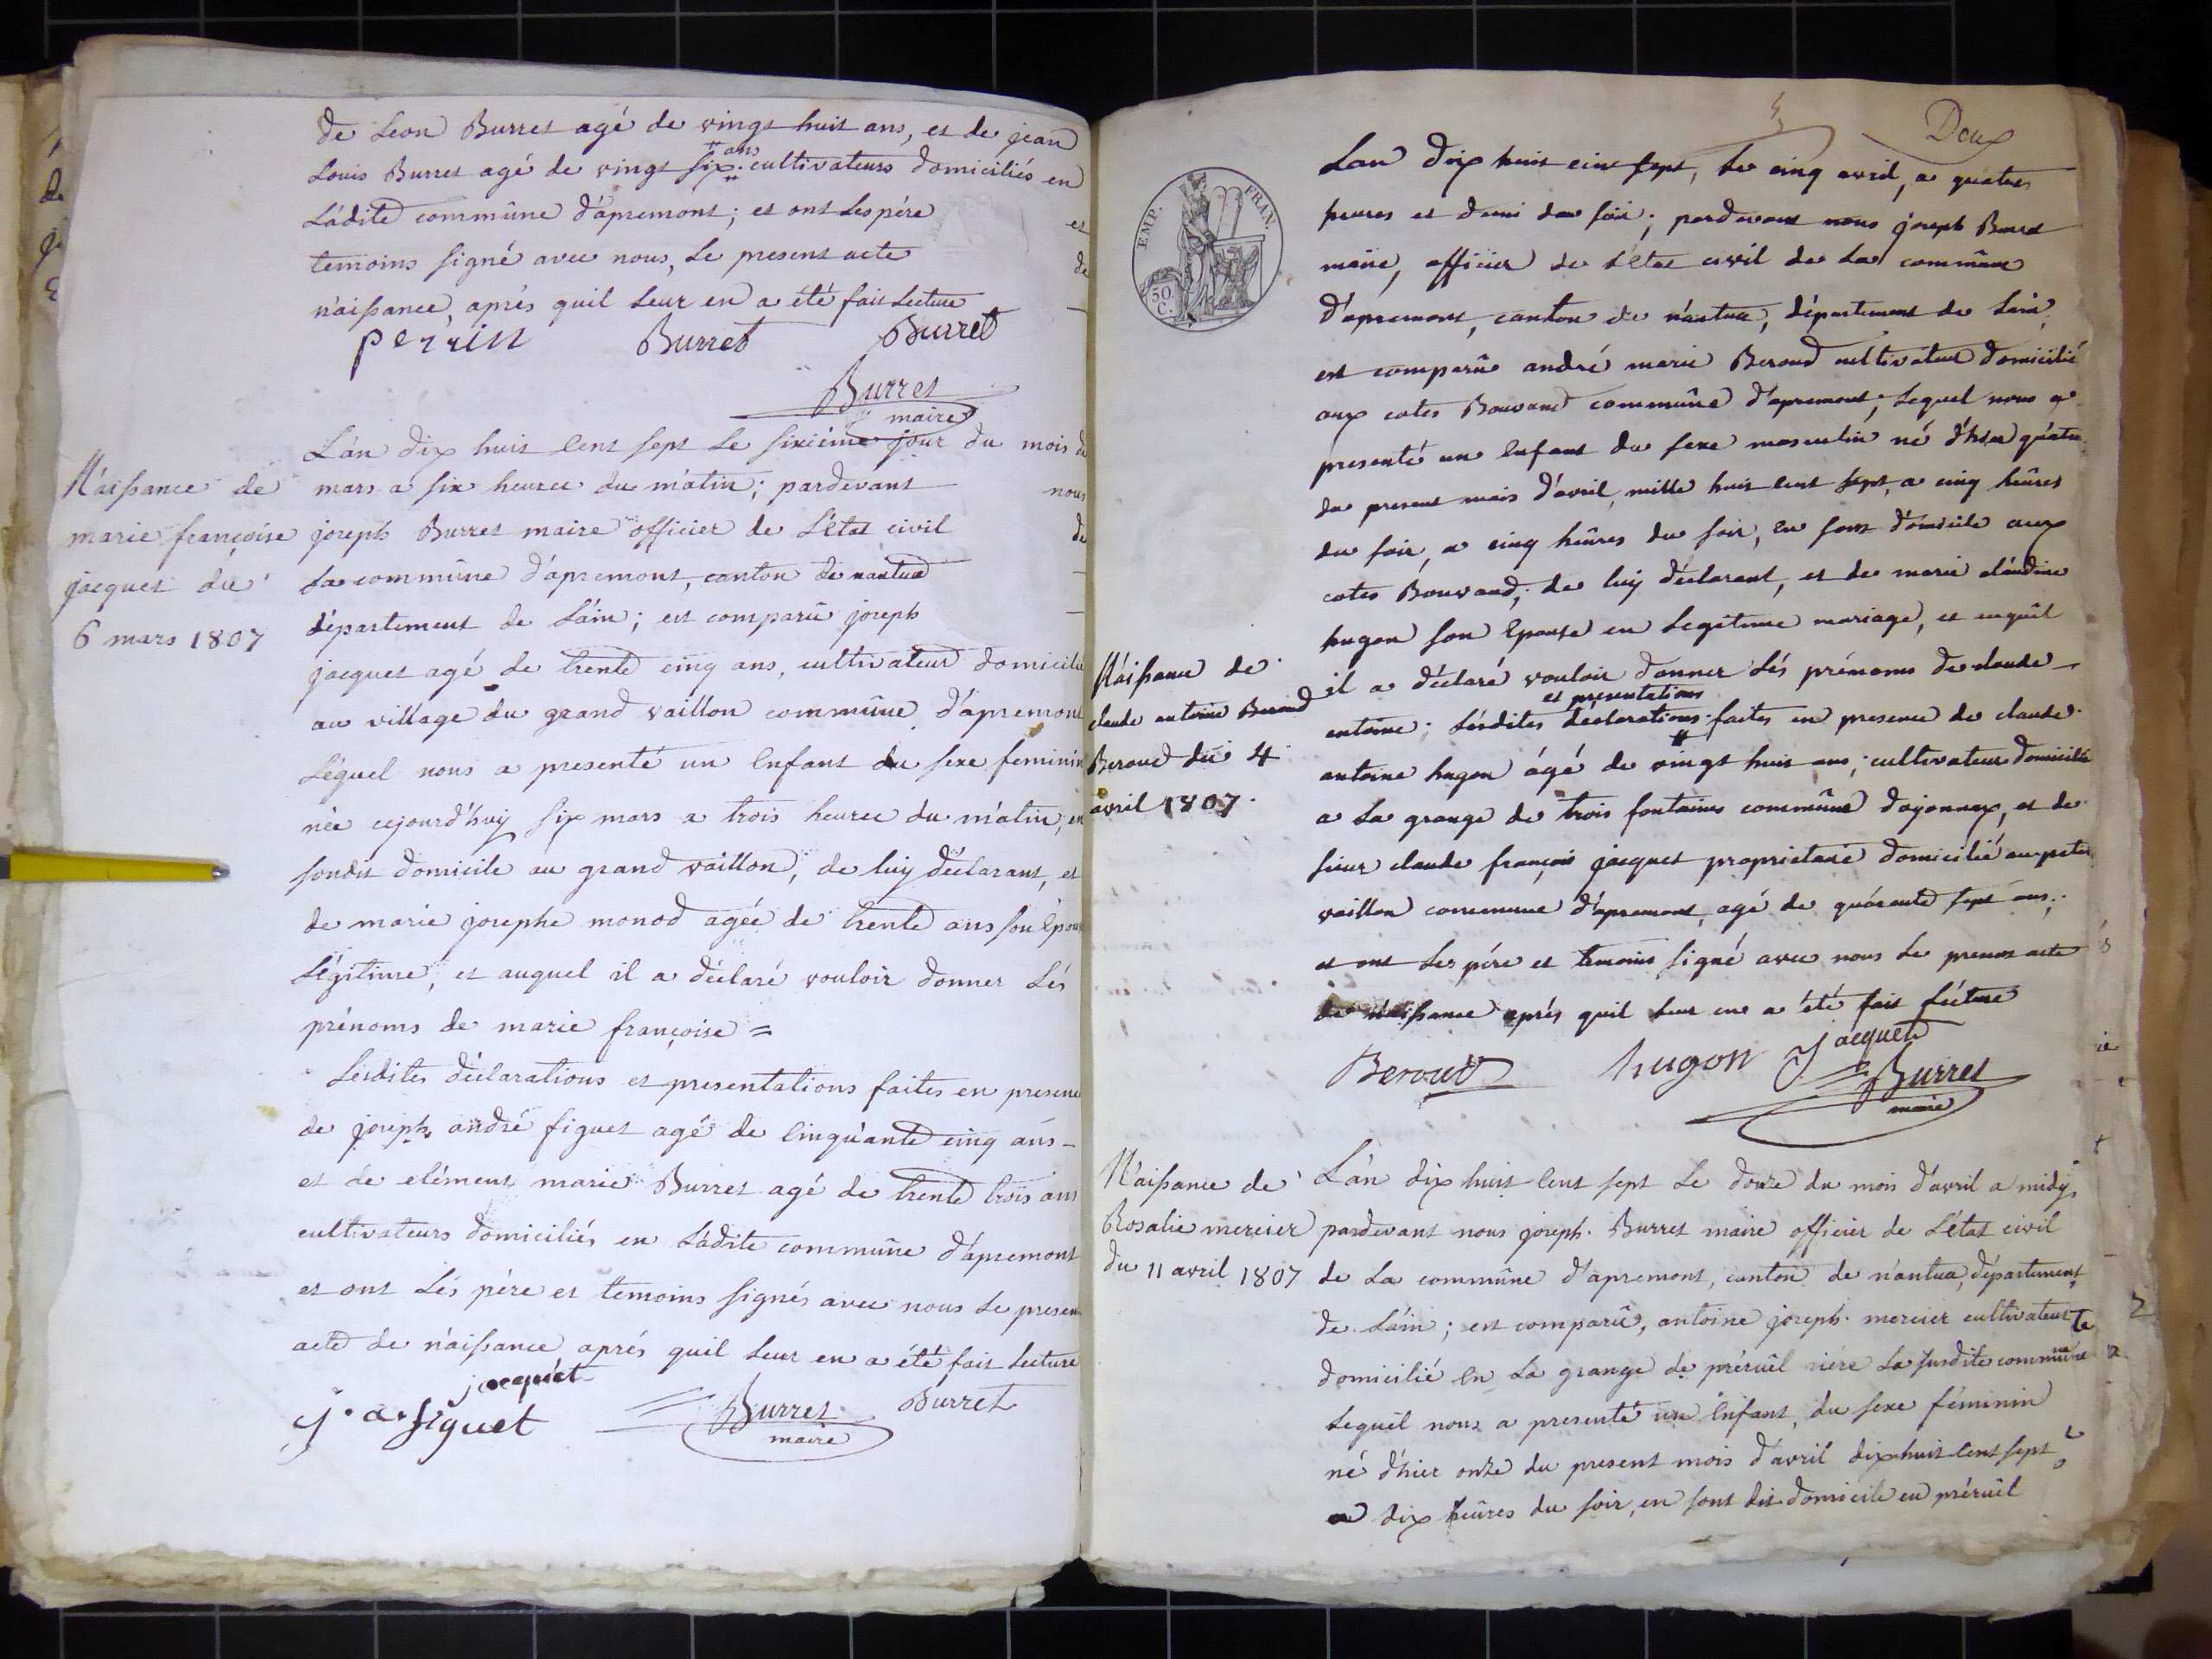 de Leon Burret agé de vingt huit ans, et de jean
ans
Louis Burret agé de vingt six cultivateurs domiciliés en
Ladite commûne d'apremont; et ont Les pére et
temoins signé avec nous, Le present acte de
n'aissance, aprés quil Leur en a été fait Lecture
perrin Burret Burret
Burret
maire
N'aissance de
marie françoise
jacquet du
6 mars 1807
L'an dix huit Cent sept Le sixiéme jour du mois de
mars a six heures du mátin; pardevant nous
joseph Burret maire officier de L'état civil de
La commûne d'apremont, canton de nantua
département de L'ain; est comparû joseph
jacquet agé de trente cinq ans, cultivateur domicilié
au village du grand vaillon commûne d'apremont
Léquel nous a presenté un Enfant du sexe feminin
née cejourd'huy six mars a trois heures du mátin, en
sondit domicile au grand vaillon, de luy déclarant, et
de marie josephe monod agée de trente ans son Epouse
Légitime, et auquel il a déclaré vouloir donner Lés
prénoms de marie françoise =
Lésdites déclarations et presentations faites en presence
de joseph andré figuet agé de Cinquante cinq ans
et de clément marie Burret agé de trente trois ans
cultivateurs domiciliés en Ládite commûne d'apremont
et ont Lés pére et temoins signés avec nous Le present
acte de n'aissance aprés quil Leur en a été fait Lecture
jacquet
j. a. figuet Burret Burret
maire
Deux
EMP. FRAN.
50 C.
Lan dix huit cent sept, Le cinq avril, a quatre
heures et demi du soir; pardevant nous joseph Burret
maire, officier de L'état civil de La commûne
d'apremont, canton de nantua, département de Lain,
est comparû andré marie Beroud cultivateur domicilié
aux cotes Bouvand commûne d'apremont; Lequel nous a
presenté un Enfant du sexe masculin né d'hier quatre
du present mois d'avril, mille huit Cent sept, a cinq heûres
du soir, a cinq heûres du soir, en sont domicile aux
cotes Bouvand, de luy déclarant, et de marie cláudine
hugon son Epouse en Legitime mariage, et auquel
il a déclaré vouloir donner Lés prénoms de claude
et presentations
antoine; Lésdites déclarations faites en presence de claude
antoine hugon ágé de vingt huit ans, cultivateur domicilié
a La grange de trois fontaines commûne dojonnax, et de
sieur claude françois jacquet proprietaire domicilié au petit
vaillon commune d'apremont, agé de quárante sept ans,
et ont Les pére et temoins signé avec nous Le present acte
de náissance aprés quil Leur en a été fait Lécture
Beroud hugon Jacquet
Burret
maire
N'aissance de
claude antoine Beroud
Beroud du 4
avril 1807.
N'aissance de
Rosalie mercier
du 11 avril 1807
L'an dix huit Cent sept Le douze du mois d'avril a midy,
pardevant nous joseph Burret maire officier de L'état civil
de La commûne d'apremont, canton de nantua, département
de L'ain; est comparû, antoine joseph mercier cultivateur
domicilié En La grange de préruil riére La susdite commune
Lequel nous a presenté un Enfant, du sexe féminin
né d'hier onze du present mois d'avril dixhuit Cent sept
a dix heûres du soir, en sont dit domicile en préruil